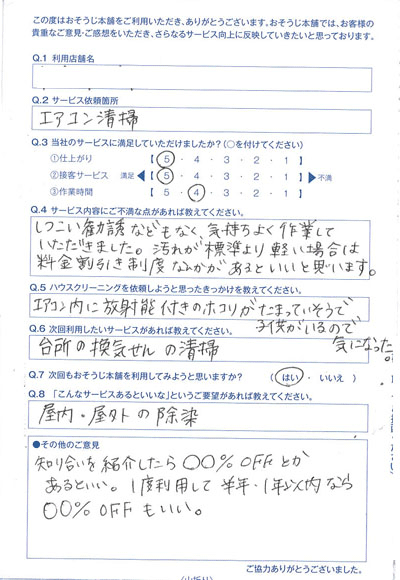 この度はおそうじ本舗をご利用いただき、ありがとうございます。おそうじ本舗では、お客様の
貴重なご意見・ご感想をいただき、さらなるサービス向上に反映していきたいと思っております。
Q.1 利用店舗名
Q.2 サービス依頼箇所
エアコン清掃
Q.3 当社のサービスに満足していただけましたか？(○を付けてください)
①仕上がり 【 5 ・ 4 ・ 3 ・ 2 ・ 1 】
②接客サービス 満足 ◀ 【 5 ・ 4 ・ 3 ・ 2 ・ 1 】 ▶ 不満
③作業時間 【 5 ・ 4 ・ 3 ・ 2 ・ 1 】
Q.4 サービス内容にご不満な点があれば教えてください。
しつこい勧誘などもなく、気持ちよく作業して
いただきました。汚れが標準より軽い場合は
料金割引き制度なんかがあるといいと思います。
Q.5 ハウスクリーニングを依頼しようと思ったきっかけを教えてください。
エアコン内に放射能付きのホコリがたまっていそうで
子供がいるので
気になった。
Q.6 次回利用したいサービスがあれば教えてください。
台所の換気せんの清掃
Q.7 次回もおそうじ本舗を利用してみようと思いますか？ （ はい ・ いいえ ）
Q.8 「こんなサービスあるといいな」というご要望があれば教えてください。
屋内・屋外の除染
●その他のご意見
知り合いを紹介したら○○% OFFとか
あるといい。1度利用して半年・1年以内なら
○○% OFFもいい。
ご協力ありがとうございました。